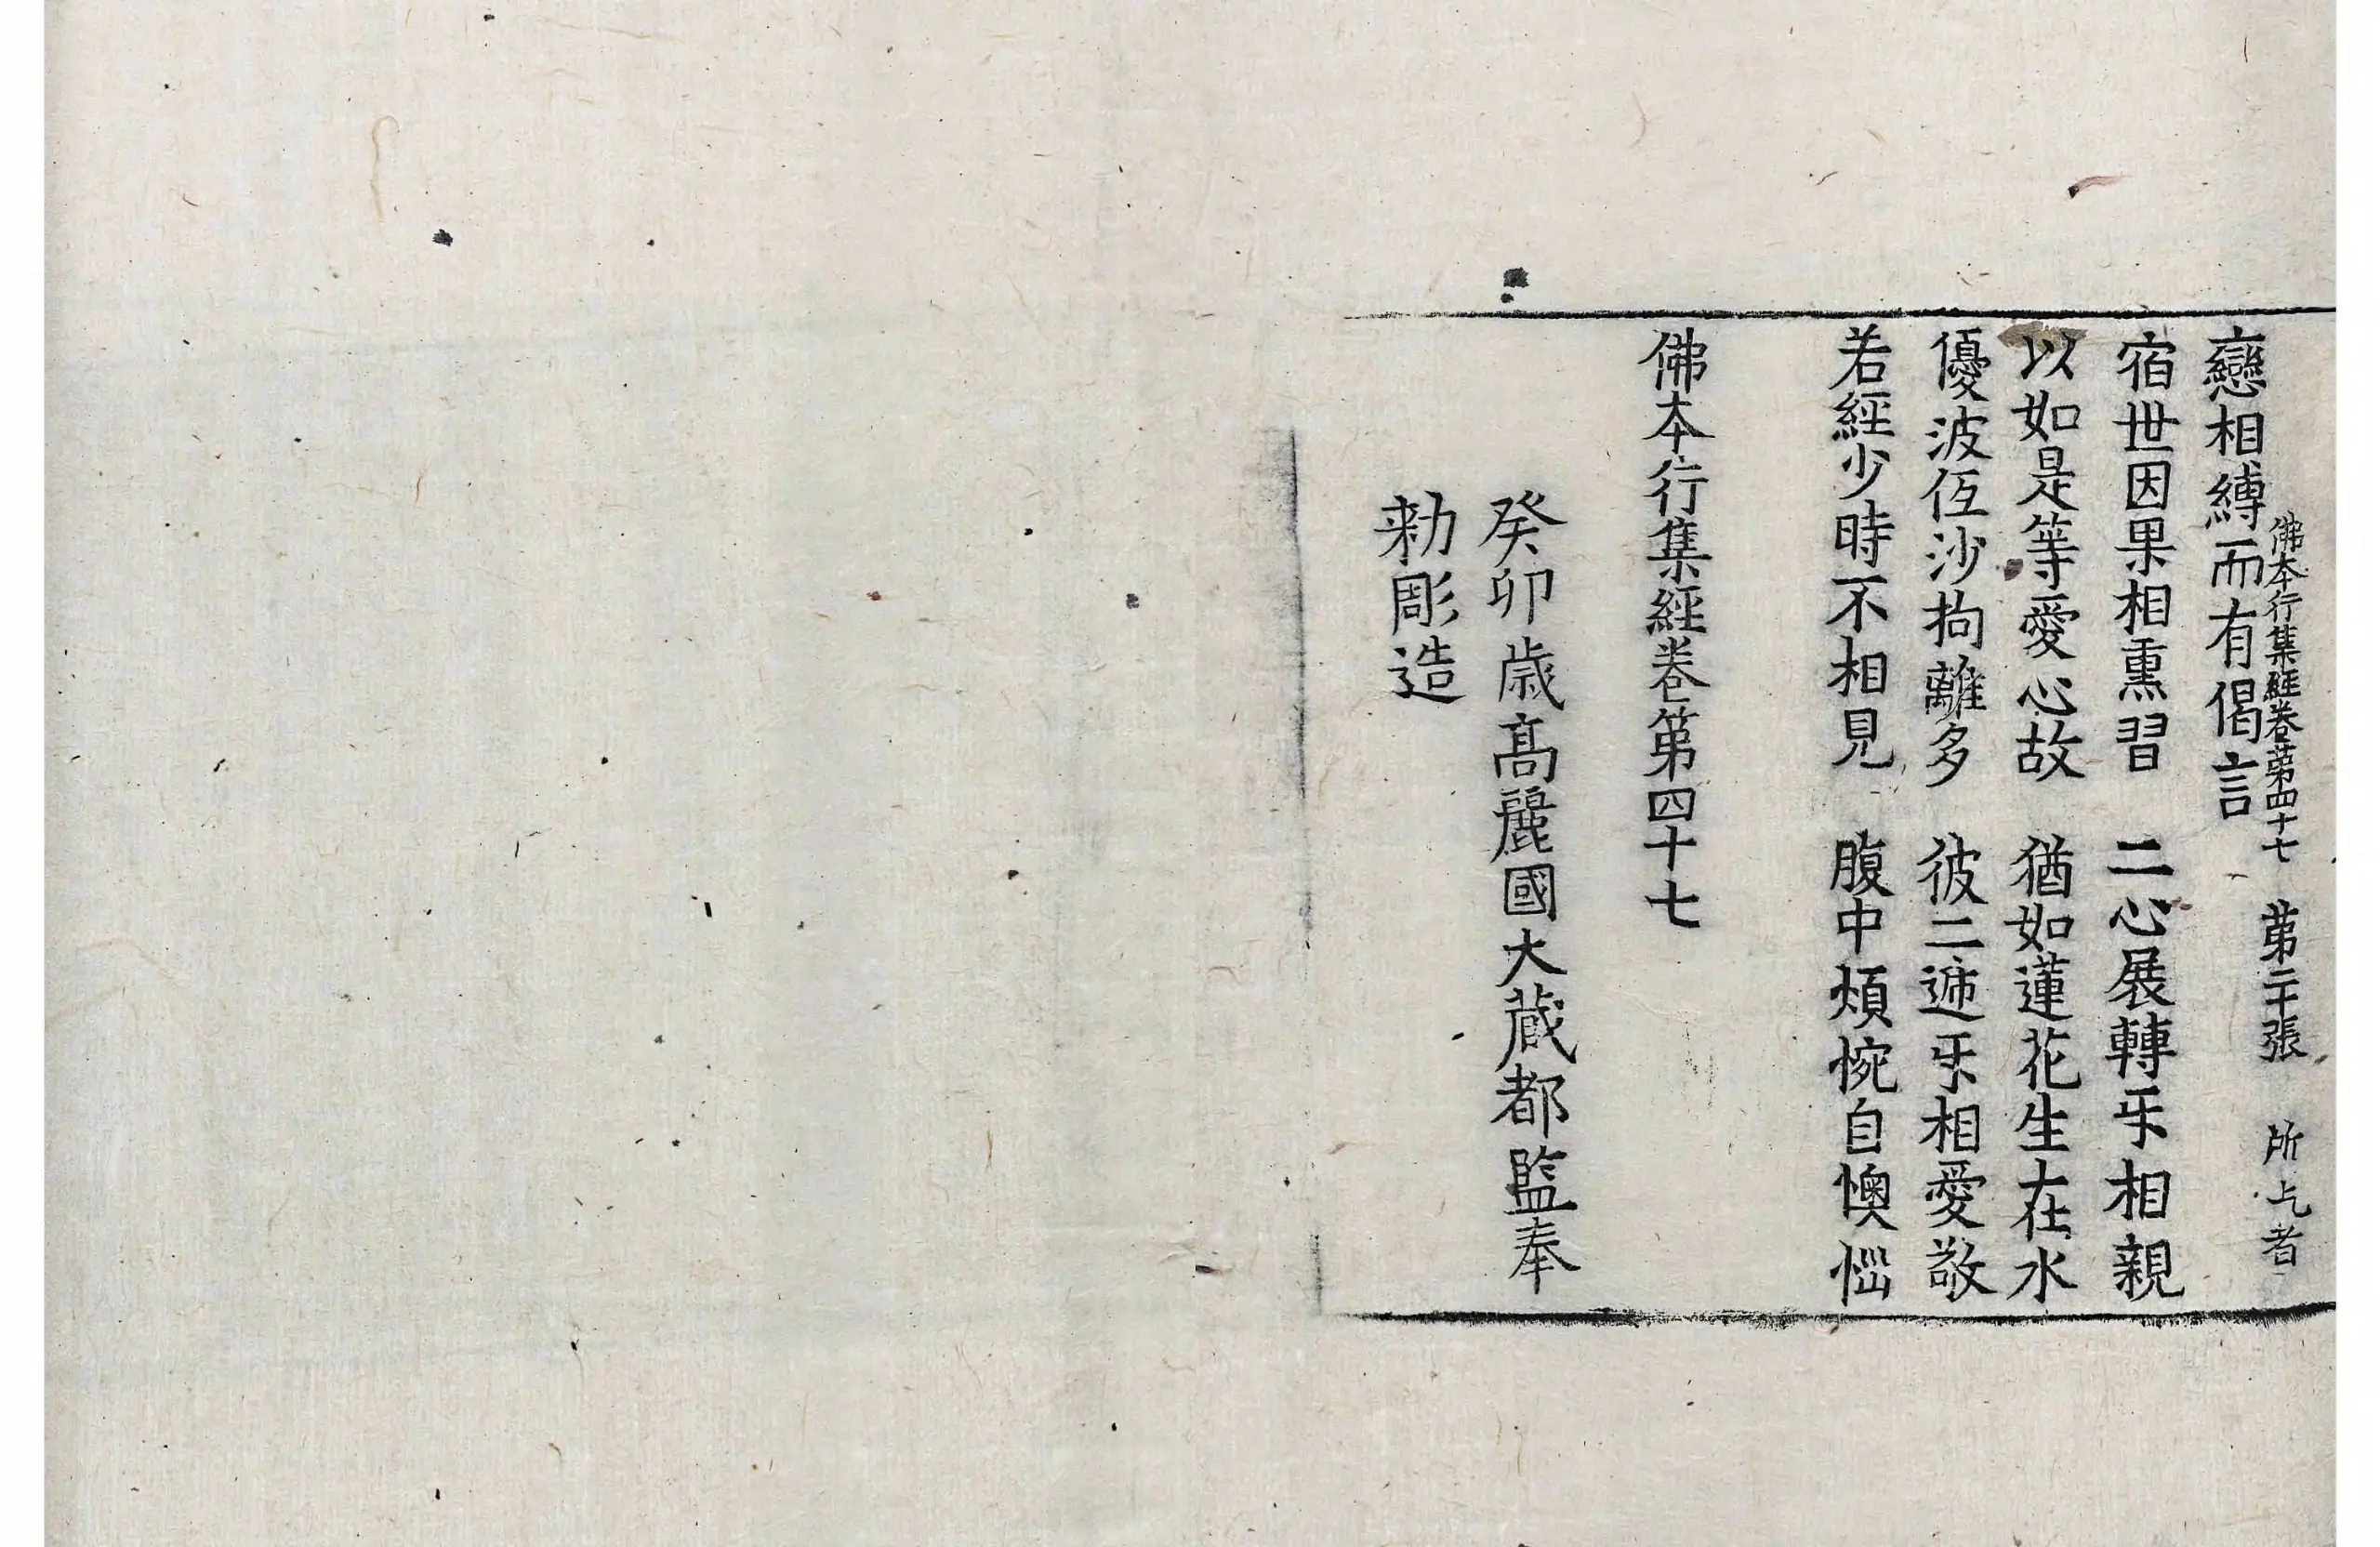 佛本行集經卷第四十七 第二十張 所
戀相縛而有偈言
宿世因果相熏習 二心展轉㸦相親
以如是等愛心故 猶如蓮花生在水
優波仾沙拘離多 彼二遞㸦相愛敬
若經少時不相見 腹中煩惋自懊惱
佛本行集經卷第四十七
癸卯歲高麗國大藏都監奉
勑彫造